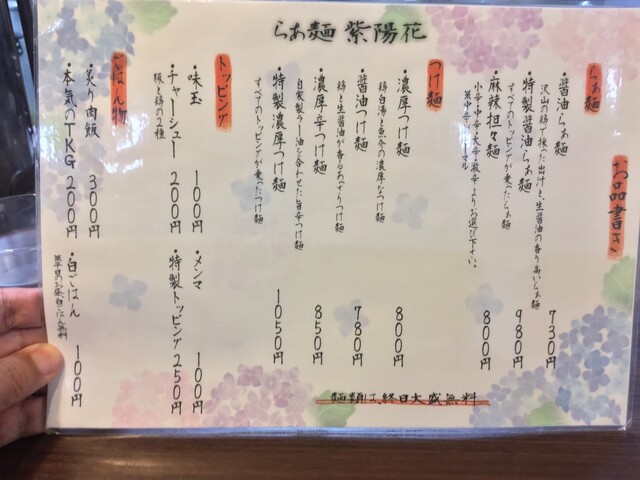 らぁ麺 紫陽花
お品書き
らぁ麺
・醤油らぁ麺 730円
沢山の鶏で挟った出汁と生醤油の香り高いらぁ麺
・特製醤油らぁ麺 980円
すべてのトッピングが乗ったらぁ麺
・麻辣担々麺 800円
小辛・中辛・大辛・激辛よりお選び下さい。
※中辛=ノーマル
つけ麺
・濃厚つけ麺 800円
鶏白湯と魚介の濃厚なつけ麺
・醤油つけ麺 780円
鶏と生醤油が香るあっさりつけ麺
・濃厚辛つけ麺 850円
自家製ラー油を合わせた旨辛つけ麺
・特製濃厚つけ麺 1050円
すべてのトッピングが乗ったつけ麺
麺類は終日大盛無料
トッピング
・味玉 100円
・メンマ 100円
・チャーシュー 200円
豚と鶏の2種
・特製トッピング 250円
ごはん物
・炙り肉飯 300円
・本気のTKG 200円
・白ごはん 100円
※平日のお昼白ごはん無料